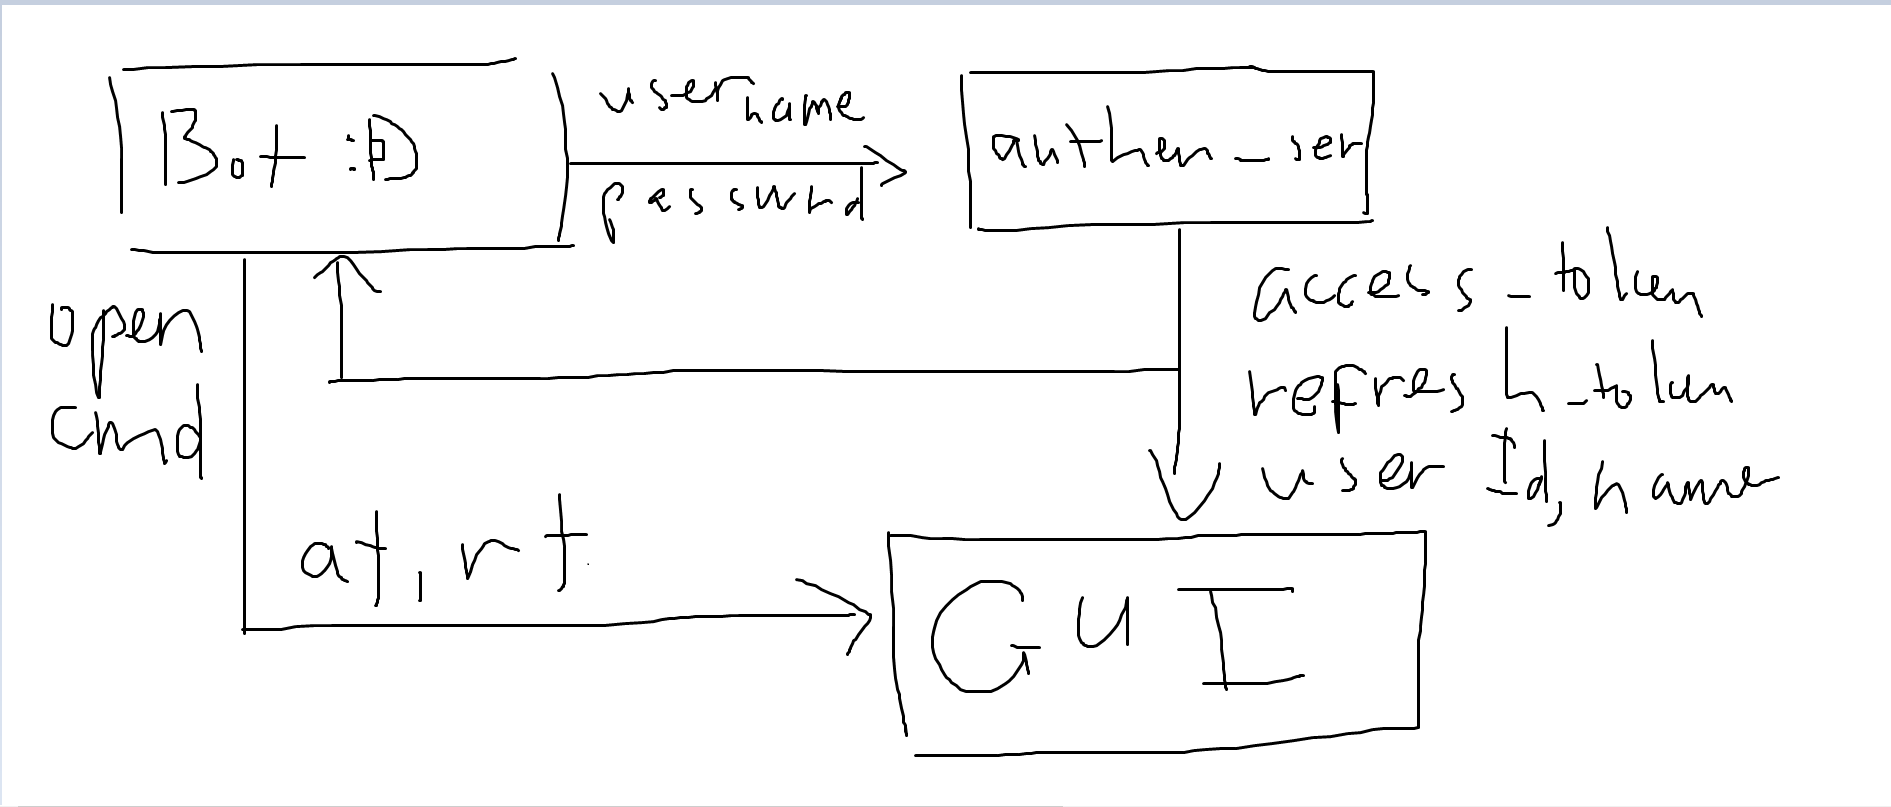 Bot :D
username
passwrd
authen_ser
open
cmd
access_token
refresh_token
user Id, name
at, rt
GUI